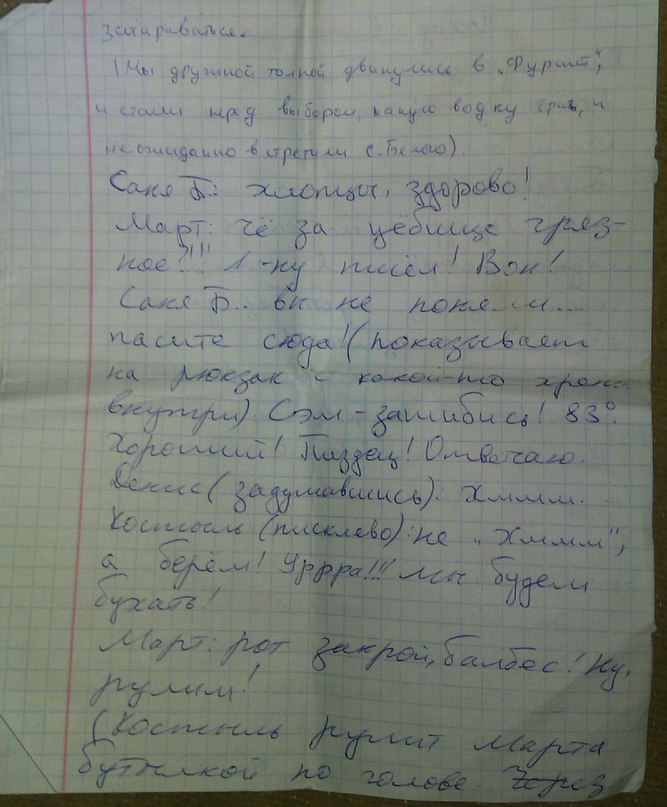 затариваться.
(Мы дружной толпой двинулись в „Фуршет",
и стали перед выбором, какую водку брать, и
неожиданно встретили С. Белого).
Саня Б.: хлопцы, здорово!
Март: чё за уёбище гряз-
ное?!!! А-ну пшёл! Вон!
Саня Б.: вы не поняли...
пасите сюда! (показывает
на рюкзак с какой-то хренью
внутри). Сэм - зашибись! 83°.
Хороший! Пиздец! Отвечаю.
Денис (задумавшись). Хммм...
Костыль (писклево): не „Хммм",
а берём! Уррра!!! Мы будем
бухать!
Март: рот закрой, балбес! Ну,
рулим!
(Костыль рулит Марта
бутылкой по голове. Через